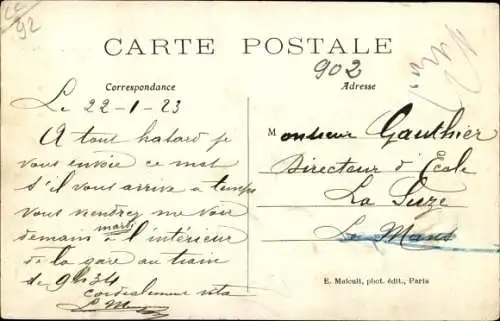 92
CARTE POSTALE
902
Correspondance
Adresse
Le 22-1-23
A tout hasard je
vous envoie ce mot
S'il vous arrive à temps
vous viendrez me voir
demain mardi à l'intérieur
de la gare au train
de 9h34
Cordialement vôtre
Monsieur Gauthier
Directeur d'Ecole
La Suze
Le Mans
E. Malcuit, phot. édit., Paris